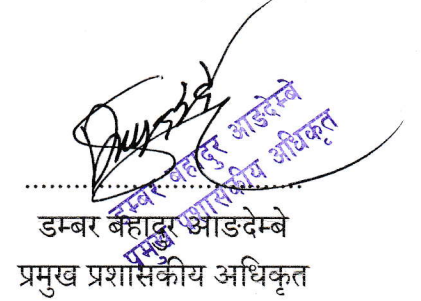 डम्बर बहादुर आङदेम्बे
प्रमुख प्रशासकीय अधिकृत
डम्बर बहादुर आङदेम्बे
प्रमुख प्रशासकीय अधिकृत